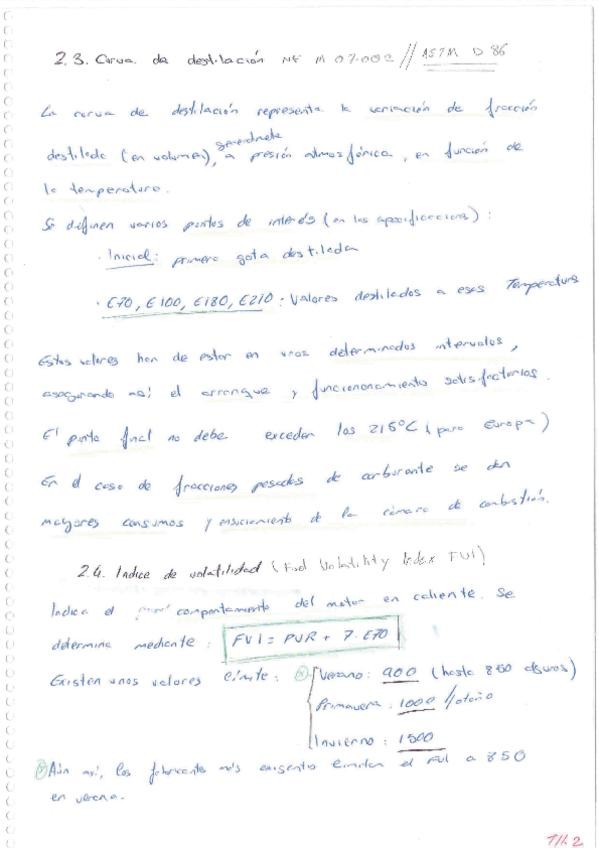 2.3. Curva de destilación NF M 07-002 // ASTM D 86
La curva de destilación representa la variación de fracción
destilada (en volumen), generalmente a presión atmosférica, en función de
la temperatura.
Se definen varios puntos de interés (en las especificaciones):
· Inicial: primera gota destilada
· E70, E100, E180, E210: Valores destilados a esas Temperatura
Estos valores han de estar en unos determinados intervalos,
asegurando así el arranque y funcionamiento satisfactorios.
El punto final no debe exceder los 215°C (para Europa)
En el caso de fracciones pesadas de carburante se dan
mayores consumos y ensuciamiento de la cámara de combustión.
2.4. Indice de volatilidad (Fuel Volatility Index FVI)
Indica el comportamiento del motor en caliente. Se
determina mediante: FVI = PVR + 7·E70
Existen unos valores límite: Verano: 900 (hasta 850 algunos)
Primavera: 1000 //otoño
Invierno: 1500
Aún así, los fabricantes más exigentes limitan el FVI a 850
en verano.
T11.2